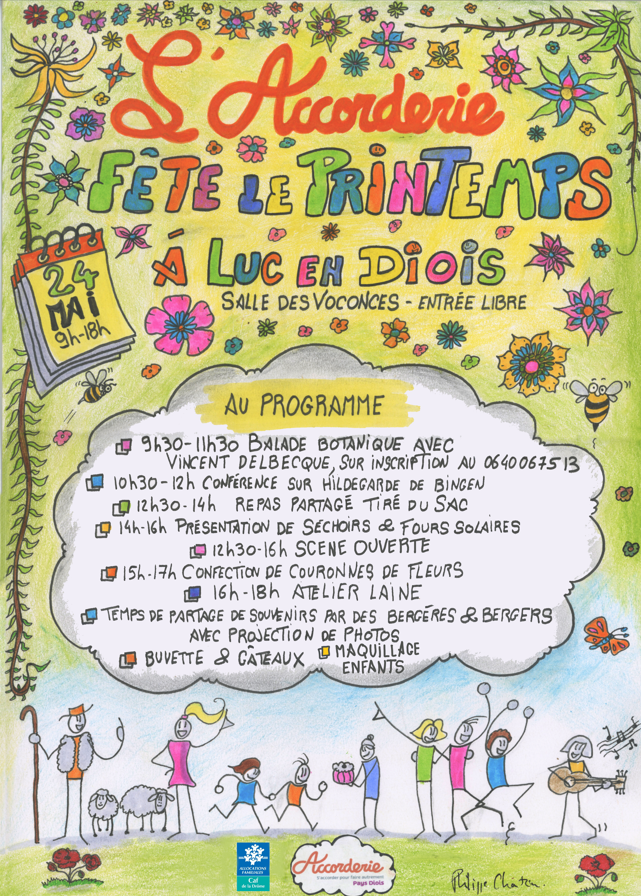 L'Accorderie
FÊTE LE PRINTEMPS
À LUC EN DIOIS
SALLE DES VOCONCES - ENTRÉE LIBRE
24
MAI
9h-18h
AU PROGRAMME
9h30-11h30 BALADE BOTANIQUE AVEC
VINCENT DELBECQUE, SUR INSCRIPTION AU 0640067513
10h30-12h CONFÉRENCE SUR HILDEGARDE DE BINGEN
12h30-14h REPAS PARTAGÉ TIRÉ DU SAC
14h-16h PRÉSENTATION DE SÉCHOIRS & FOURS SOLAIRES
12h30-16h SCENE OUVERTE
15h-17h CONFECTION DE COURONNES DE FLEURS
16h-18h ATELIER LAINE
TEMPS DE PARTAGE DE SOUVENIRS PAR DES BERGÉRES & BERGERS
AVEC PROJECTION DE PHOTOS
BUVETTE & GÂTEAUX
MAQUILLAGE
ENFANTS
ALLOCATIONS
FAMILIALES
Caf
de la Drôme
Accorderie
S'accorder pour faire autrement
Pays Diois
Philippe